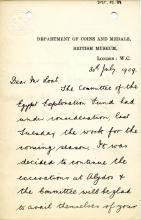 DEPARTMENT OF COINS AND MEDALS,
BRITISH MUSEUM,
LONDON: W.C.
30th July 1909.
Dear Mr Loat,
The Committee of the
Egypt Exploration Fund had
under consideration, last
Tuesday the work for the
coming season. It was
decided to continue the
excavations at Abydos &
the Committee will be glad
to avail themselves of your